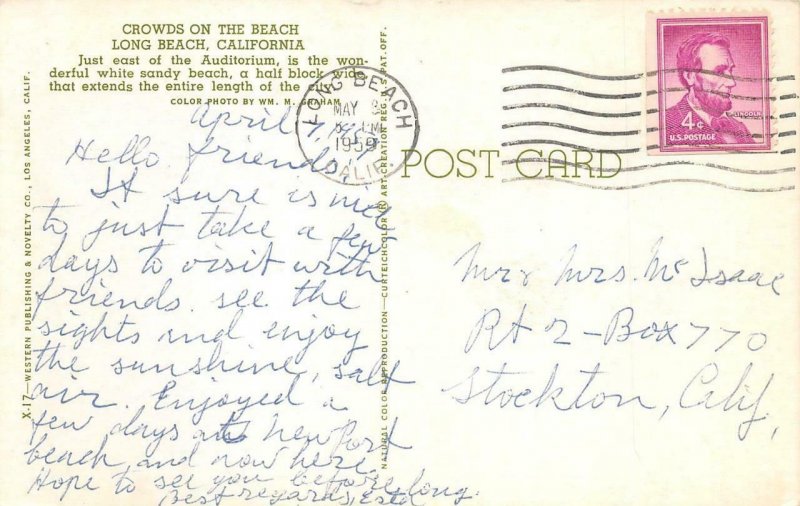 CROWDS ON THE BEACH
LONG BEACH, CALIFORNIA
Just east of the Auditorium, is the won-
derful white sandy beach, a half block wide
that extends the entire length of the city.
COLOR PHOTO BY WM. M. GRAHAM
April
Hello friends,
It sure is nice
to just take a few
days to visit with
friends, see the
sights and enjoy
the sunshine, salt
air. Enjoyed a
few days at Newport
beach, and now here.
Hope to see you before long.
Best regards,
X-17—WESTERN PUBLISHING & NOVELTY CO., LOS ANGELES, CALIF.
NATURAL COLOR REPRODUCTION—CURTEICHCOLOR ® ART-CREATION REG. U.S. PAT. OFF.
LONG BEACH
MAY
PM
1959
CALIF.
POST CARD
4¢
LINCOLN
U.S. POSTAGE
Mr & Mrs. McIsaac
Rt 2 - Box 770
Stockton, Calif,